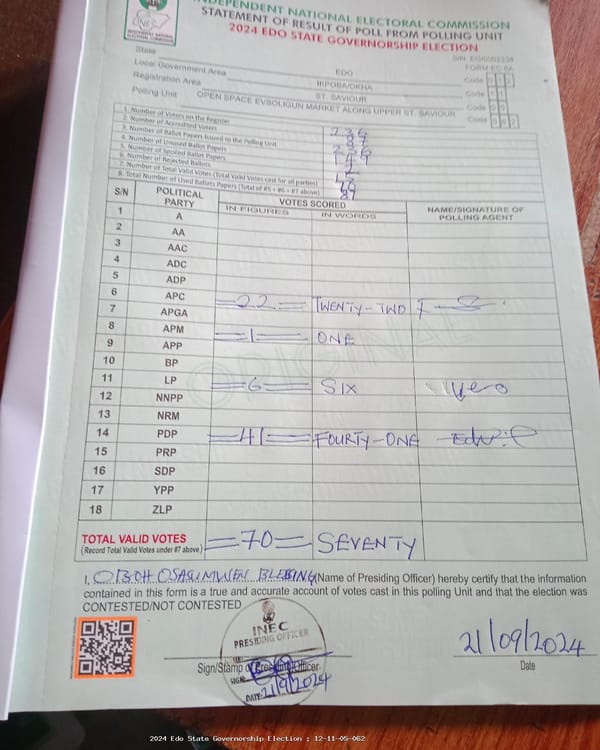 INDEPENDENT NATIONAL ELECTORAL COMMISSION
STATEMENT OF RESULT OF POLL FROM POLLING UNIT
2024 EDO STATE GOVERNORSHIP ELECTION
FORM EC 8A
State EDO Code
Local Government Area IKPOBA/OKHA Code
Registration Area ST. SAVIOUR Code
Polling Unit OPEN SPACE EVBOLIGUN MARKET ALONG UPPER ST. SAVIOUR Code
1. Number of Voters on the Register
2. Number of Accredited Voters 87
3. Number of Ballot Papers Issued to the Polling Unit
4. Number of Unused Ballot Papers
5. Number of Spoiled Ballot Papers
6. Number of Rejected Ballots
7. Number of Total Valid Votes (Total Valid Votes cast for all parties)
8. Total Number of Used Ballots Papers (Total of #5 + #6 + #7 above) 87
S/N POLITICAL PARTY VOTES SCORED NAME/SIGNATURE OF POLLING AGENT
IN FIGURES IN WORDS
1 A
2 AA
3 AAC
4 ADC
5 ADP
6 APC =22= TWENTY-TWO
7 APGA
8 APM =1= ONE
9 APP
10 BP
11 LP =6= SIX Vero
12 NNPP
13 NRM
14 PDP =41= FOURTY-ONE
15 PRP
16 SDP
17 YPP
18 ZLP
TOTAL VALID VOTES =70= SEVENTY
(Record Total Valid Votes under #7 above)
I, OBOH OSARUMWEN BLESSING (Name of Presiding Officer) hereby certify that the information
contained in this form is a true and accurate account of votes cast in this polling Unit and that the election was
CONTESTED/NOT CONTESTED
INEC
PRESIDING OFFICER
SIGN:
DATE: 21/9/2024
Sign/Stamp of Presiding Officer
21/09/2024
Date
2024 Edo State Governorship Election : 12-11-05-062